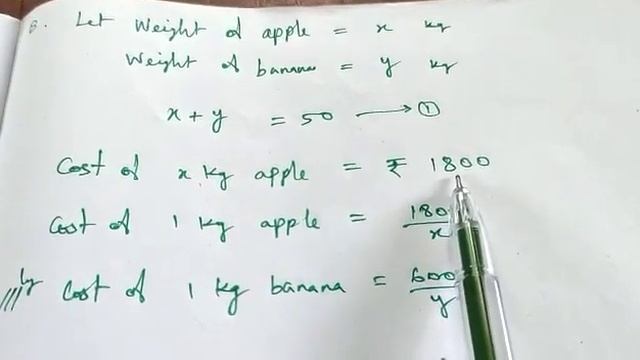 8. Let Weight of apple = x kg
Weight of banana = y kg
x + y = 50 → ①
Cost of x kg apple = ₹ 1800
Cost of 1 kg apple = 180/x
|||ly Cost of 1 kg banana = 600/y